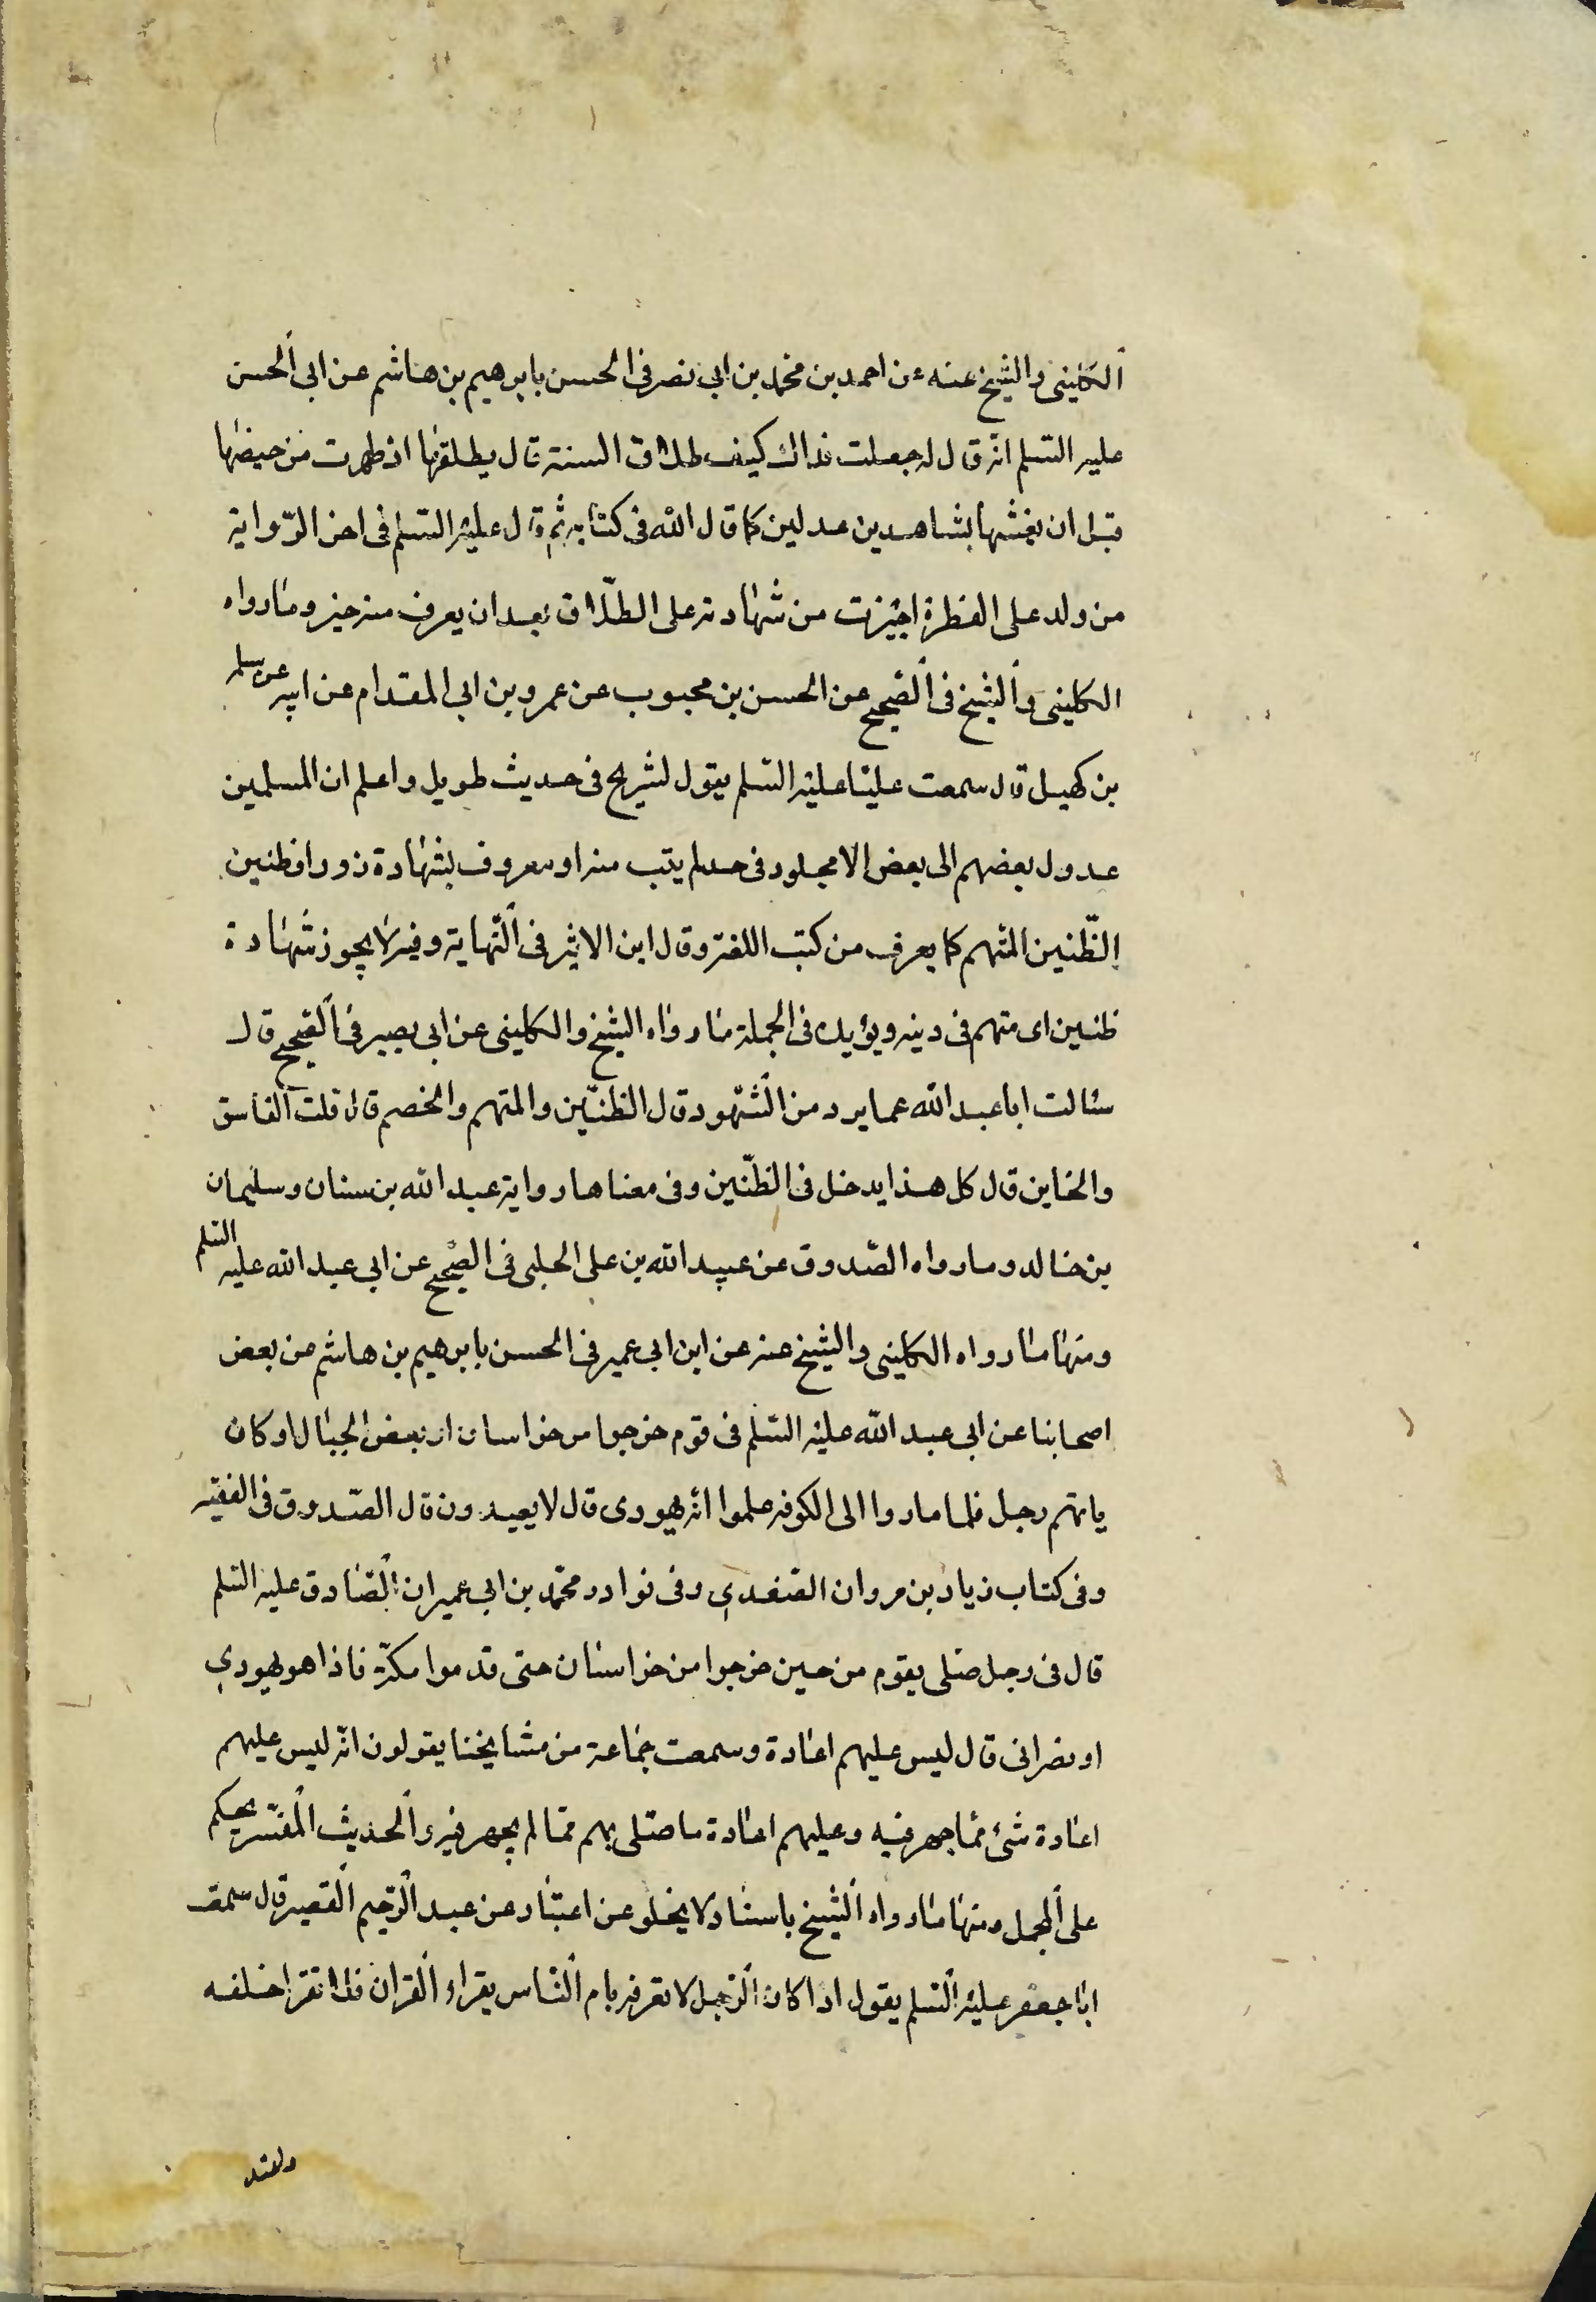 الكلينى والشيخ عنه عن احمد بن محمد بن ابى نصر فى الحسن بابرهيم بن هاشم عن ابى الحسن
عليه السلم انه قال له جعلت فداك كيف طلاق السنة قال يطلقها اذ طهرت من حيضها
قبل ان يغشها بشاهدين عدلين كما قال الله فى كتابه ثم قال عليه السلم فى اخر الرواية
من ولد على الفطرة اجيزت من شهادته على الطلاق بعد ان يعرف منه خير وما رواه
الكلينى والشيخ فى الصحيح عن الحسن بن محبوب عن عمرو بن ابى المقدام عن ابيه عن سلمه
بن كهيل قال سمعت عليا عليه السلم يقول لشريح فى حديث طويل واعلم ان المسلمين
عدول بعضهم الى بعض الا مجلود فى حد لم يتب منه او معروف بشهادة زور او ظنين
الظنين المتهم كما يعرف من كتب اللغة وقال ابن الاثير فى النهاية وفيه لا يجوز شهادة
ظنين اى متهم فى دينه ويؤيده فى الجملة ما رواه الشيخ والكلينى عن ابى بصير فى الصحيح قال
سئالت ابا عبد الله عما يرد من الشهود قال الظنين والمتهم والخصم قال قلت الفاسق
والخاين قال كل هذا يدخل فى الظنين وفى معناها رواية عبد الله بن سنان وسليمان
بن خالد وما رواه الصدوق عن عبيد الله بن على الحلبى فى الصحيح عن ابى عبد الله عليه السلم
ومنها ما رواه الكلينى والشيخ عنه عن ابن ابى عمير فى الحسن بابرهيم بن هاشم عن بعض
اصحابنا عن ابى عبد الله عليه السلم فى قوم خرجوا من خراسان او بعض الجبال او كان
يامهم رجل فلما صاروا الى الكوفه علموا انه يهودى قال لا يعيدون قال الصدوق فى الفقيه
وفى كتاب زياد بن مروان القندى وفى نوادر محمد بن ابى عمير ان الصادق عليه السلم
قال فى رجل صلى بقوم من حين خرجوا من خراسان حتى قدموا مكة فاذا هو يهودى
او نصرانى قال ليس عليهم اعادة وسمعت جماعة من مشايخنا يقولون انه ليس عليهم
اعادة شئ مما جهر فيه وعليهم اعادة ما صلى بهم مما لم يجهر فيه والحديث المفسر يحكم
على المجمل ومنها ما رواه الشيخ باسناد لا يخلو عن اعتبار عن عبد الرحيم القصير قال سمعت
ابا جعفر عليه السلم يقول اذا كان الرجل لا تعرفه يام الناس يقراء القران فلا تقرا خلفه